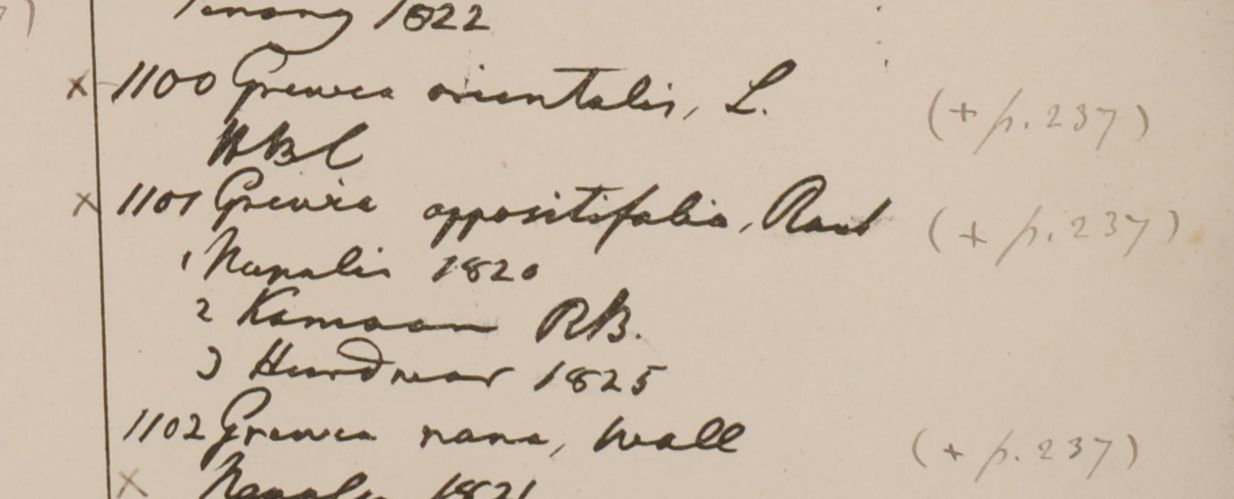 Penang 1822
x 1100 Grewia orientalis, L. (+ p. 237)
HBC
x 1101 Grewia oppositifolia, Roxb (+ p. 237)
1 Napalia 1820
2 Kamaon RB.
3 Hurdwar 1825
1102 Grewia nana, Wall (+ p. 237)
x Napalia 1821